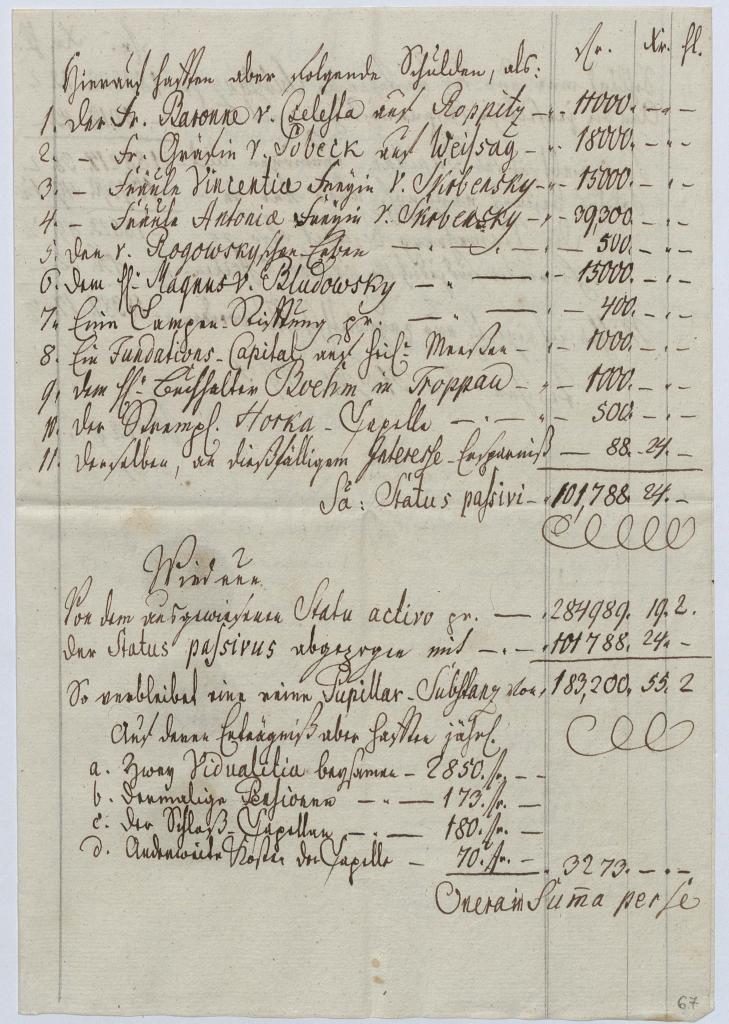 fr. Xr. hl.
Hierauf hafften aber folgende Schulden, als:
1. Der Fr. Baronne v. Celesta auf Roppitz - " 11000. - " -
2. - Fr. Gräfin v. Sobeck auf Weissag - " 15000. - " -
3. - Fräule Vincentia Freyin v. Skrbensky - " 15000. - " -
4. - Fräule Antonia Freyin v. Skrbensky - " 39,300. - " -
5. Den v. Rogowskyschen Erben - " - " - 500. - " -
6. Dem H: Magnus v. Bludowsky - " - " - 15000. - " -
7. Eine Lampen-Stifftung pr. - " - " - 400. - " -
8. Ein Fundations-Capital auf - " - 1000. - " -
9. Dem H: Buchhalter Boehm in Troppau - " - 1000. - " -
10. Der Horka-Capelle - " - " - 500. - " -
11. Derselben, an dießfälligem Interesse-Ersparniß - 88. 24. -
Sa: Status passivi - " 101,788. 24. -
Wird nun
Von dem ausgewiesenen Statu activo pr. - " 284989. 19. 2.
der Status passivus abgezogen mit - " - " 101788. 24. -
So verbleibet eine reine Pupillar-Substanz von " 183,200. 55. 2
Auf deren Erträgniß aber hafften jährl.
a. Zwey Vidualitia beysamen - 2850. fr. - -
b. Dermalige Pensionen - " - 173. fr. -
c. Der Schloß-Capellan - " - 180. fr. -
d. Anderweite Kosten der Capelle - 70. fr. - 3273. - " -
Onera in Summa per se
67